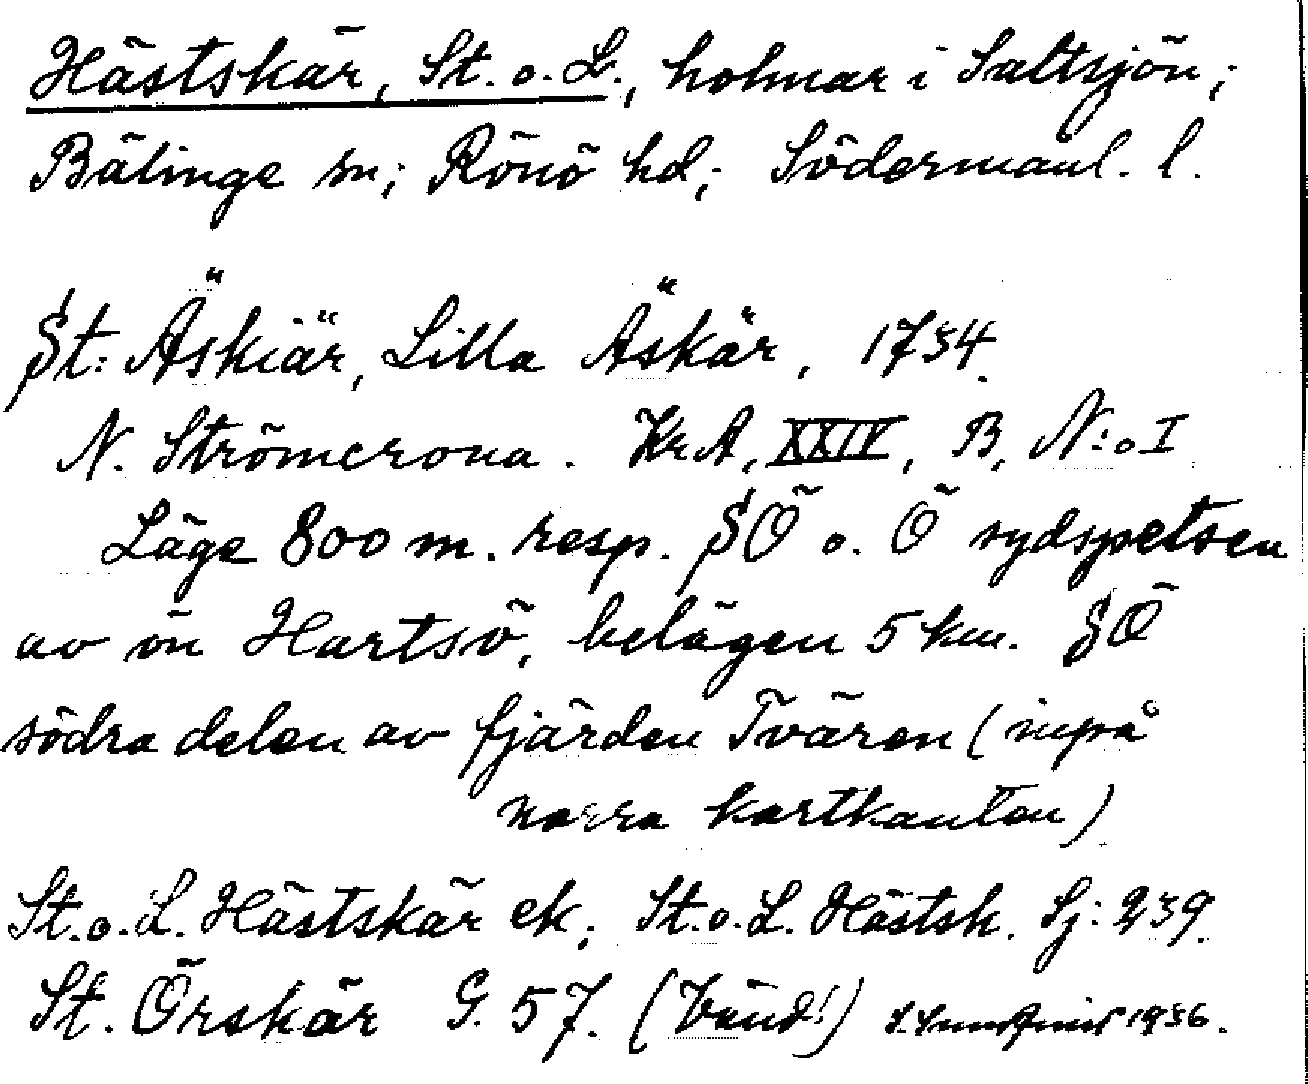 Hästskär, St. o. L., holmar i Saltsjön;
Bälinge sn; Rönö hd; Södermanl. l.
St: Äskiär, Lilla Äskär, 1734.
N. Strömcrona. Kr.A, XXIV, B, N:o I
Läge 800 m. resp. SÖ o. Ö sydspetsen
av ön Hartsö, belägen 5 km. SÖ
södra delen av fjärden Tvären (inpå
norra kartkanten)
St. o. L. Hästskär ek; St. o. L. Hästsk. Sj: 239.
St. Örskär G. 57. (Vänd!) 1936.